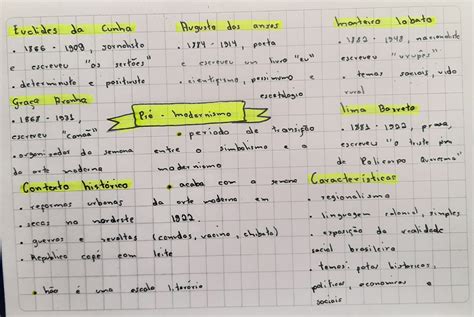 Euclides da Cunha
• 1866 - 1909, jornalista
e escreveu "os sertões"
• determinista e positivista
Augusto dos anjos
• 1884 - 1914, poeta
e escreveu um livro "eu"
• cientificismo, pessimismo e
escatologia
monteiro lobato
• 1882 - 1948, nacionalista
escreveu "urupês"
• temas sociais, vida
rural
Graça Aranha
• 1868 - 1931,
escreveu "Canaã"
• organizador da semana
da arte moderna
Pré - modernismo
• período de transição
entre o simbolismo e o
modernismo
• acaba com a semana
da arte moderna em
1922.
lima Barreto
• 1881 - 1922, prosa,
escreveu "o triste fim
de Policarpo Quaresma"
Contexto histórico
• reformas urbanas
• secas no nordeste
• guerras e revoltas (canudos, vacina, chibata)
• República café com leite
• não é uma escola literária
Características
• regionalismo
• linguagem colonial, simples
• exposição da realidade
social brasileira
• temas: fatos históricos,
políticos, economicos e
sociais